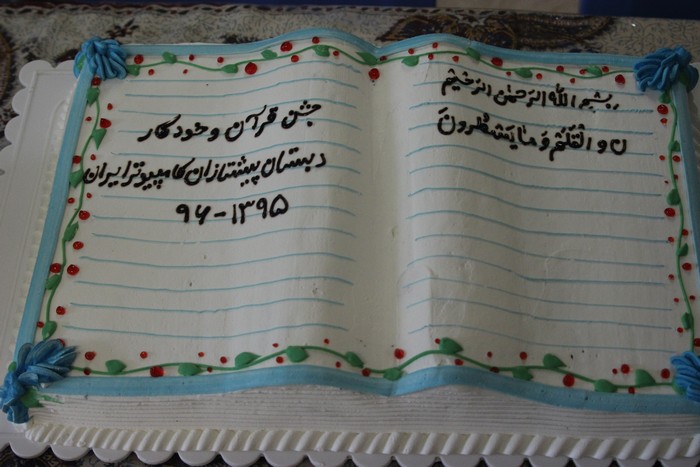 بسم الله الرحمن الرحیم
ن و القلم و ما یسطرون
جشن قرآن و خودکار
دبستان پیشتازان کامپیوتر ایران
۱۳۹۵-۹۶